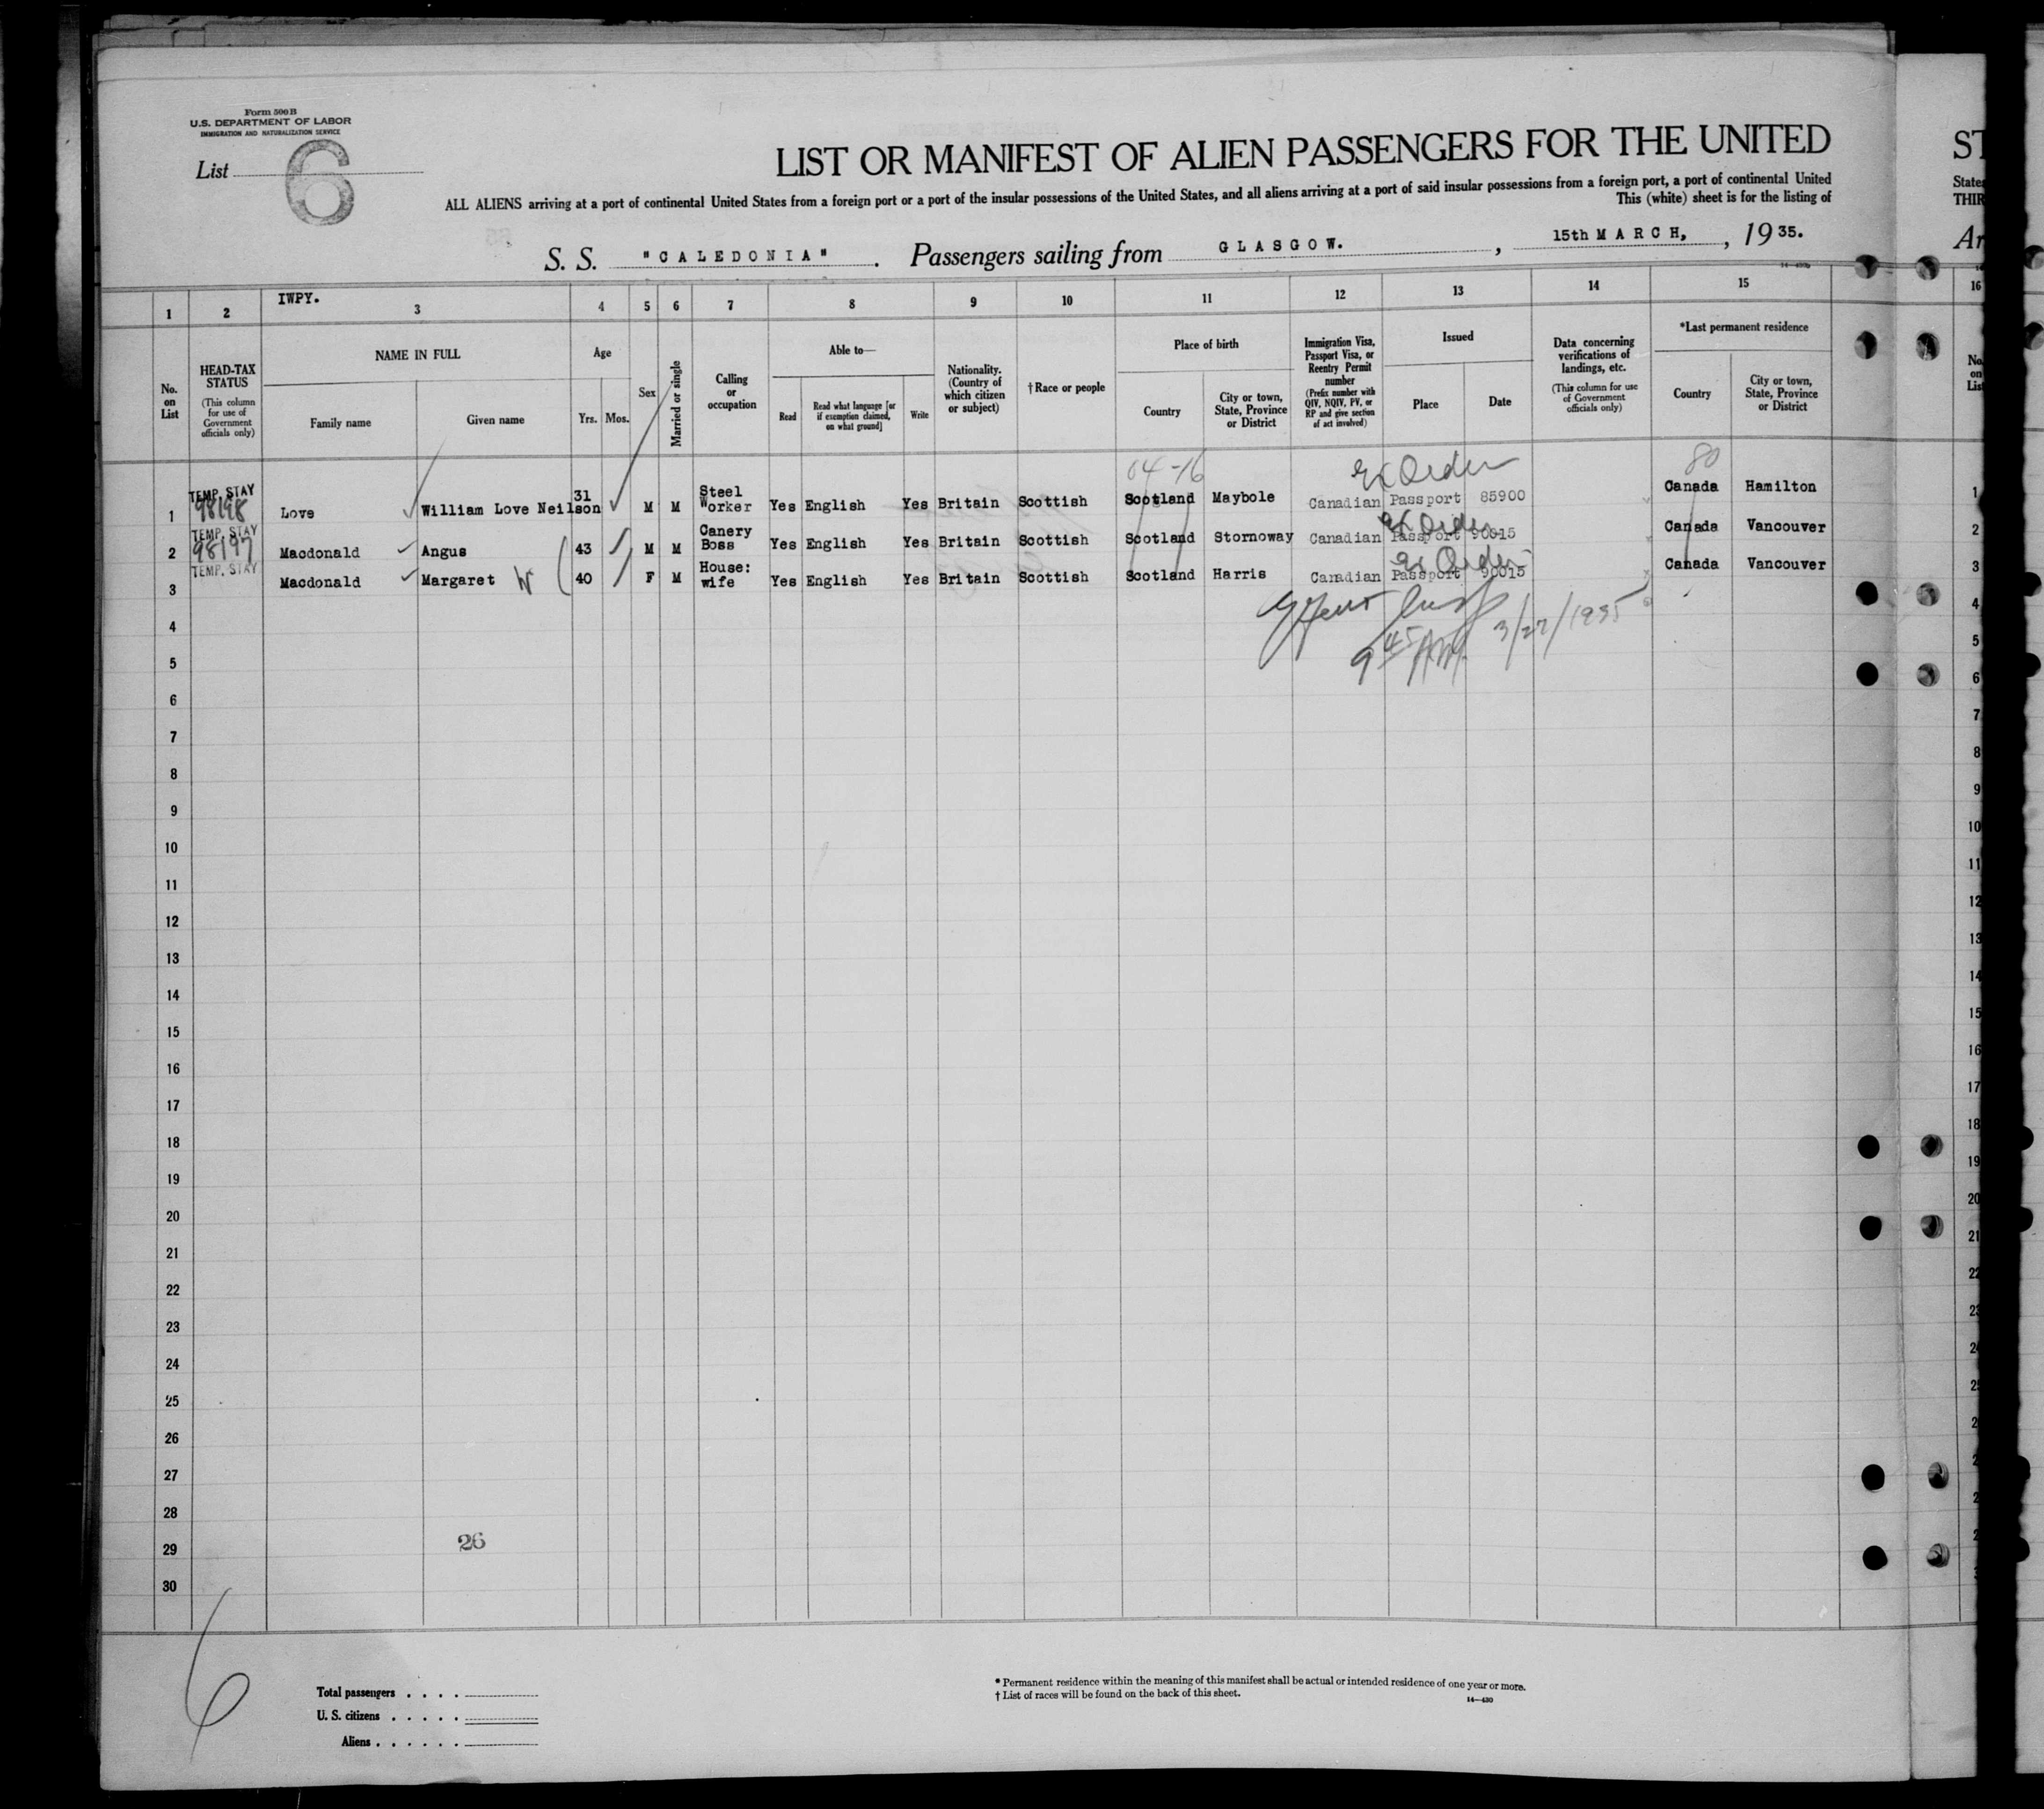 Form 500 B
U.S. DEPARTMENT OF LABOR
IMMIGRATION AND NATURALIZATION SERVICE
List 6
LIST OR MANIFEST OF ALIEN PASSENGERS FOR THE UNITED
ALL ALIENS arriving at a port of continental United States from a foreign port or a port of the insular possessions of the United States, and all aliens arriving at a port of said insular possessions from a foreign port, a port of continental United
This (white) sheet is for the listing of
S. S. "CALEDONIA". Passengers sailing from GLASGOW. , 15th MARCH, , 19 35.
ST
States
THIR
Ar
1 2 IWPY. 3 4 5 6 7 8 9 10 11 12 13 14 15 16
No. on List
HEAD-TAX STATUS
(This column for use of Government officials only)
NAME IN FULL
Family name
Given name
Age
Yrs.
Mos.
Sex
Married or single
Calling or occupation
Able to—
Read
Read what language [or if exemption claimed, on what ground]
Write
Nationality. (Country of which citizen or subject)
†Race or people
Place of birth
Country
City or town, State, Province or District
Immigration Visa, Passport Visa, or Reentry Permit number
(Prefix number with QIV, NQIV, PV, or RP and give section of act involved)
Issued
Place
Date
Data concerning verifications of landings, etc.
(This column for use of Government officials only)
*Last permanent residence
Country
City or town, State, Province or District
No. on List
04-16 Ex Order 80
1 TEMP. STAY 98198 Love William Love Neilson 31 M M Steel Worker Yes English Yes Britain Scottish Scotland Maybole Canadian Passport 85900 Canada Hamilton 1
Ex Order
2 TEMP. STAY 98197 Macdonald Angus 43 M M Canery Boss Yes English Yes Britain Scottish Scotland Stornoway Canadian Passport 90015 Canada Vancouver 2
Ex Order
3 TEMP. STAY Macdonald Margaret W 40 F M House: wife Yes English Yes Britain Scottish Scotland Harris Canadian Passport 90015 Canada Vancouver 3
4 4
9 45 AM 3/27/1935
5 5
6 6
7 7
8 8
9 9
10 10
11 11
12 12
13 13
14 14
15 15
16 16
17 17
18 18
19 19
20 20
21 21
22 22
23 23
24 24
25 25
26
27
28
26
29
30
6
Total passengers . . . .
U. S. citizens . . . . .
Aliens . . . . . .
* Permanent residence within the meaning of this manifest shall be actual or intended residence of one year or more.
† List of races will be found on the back of this sheet.
14—430